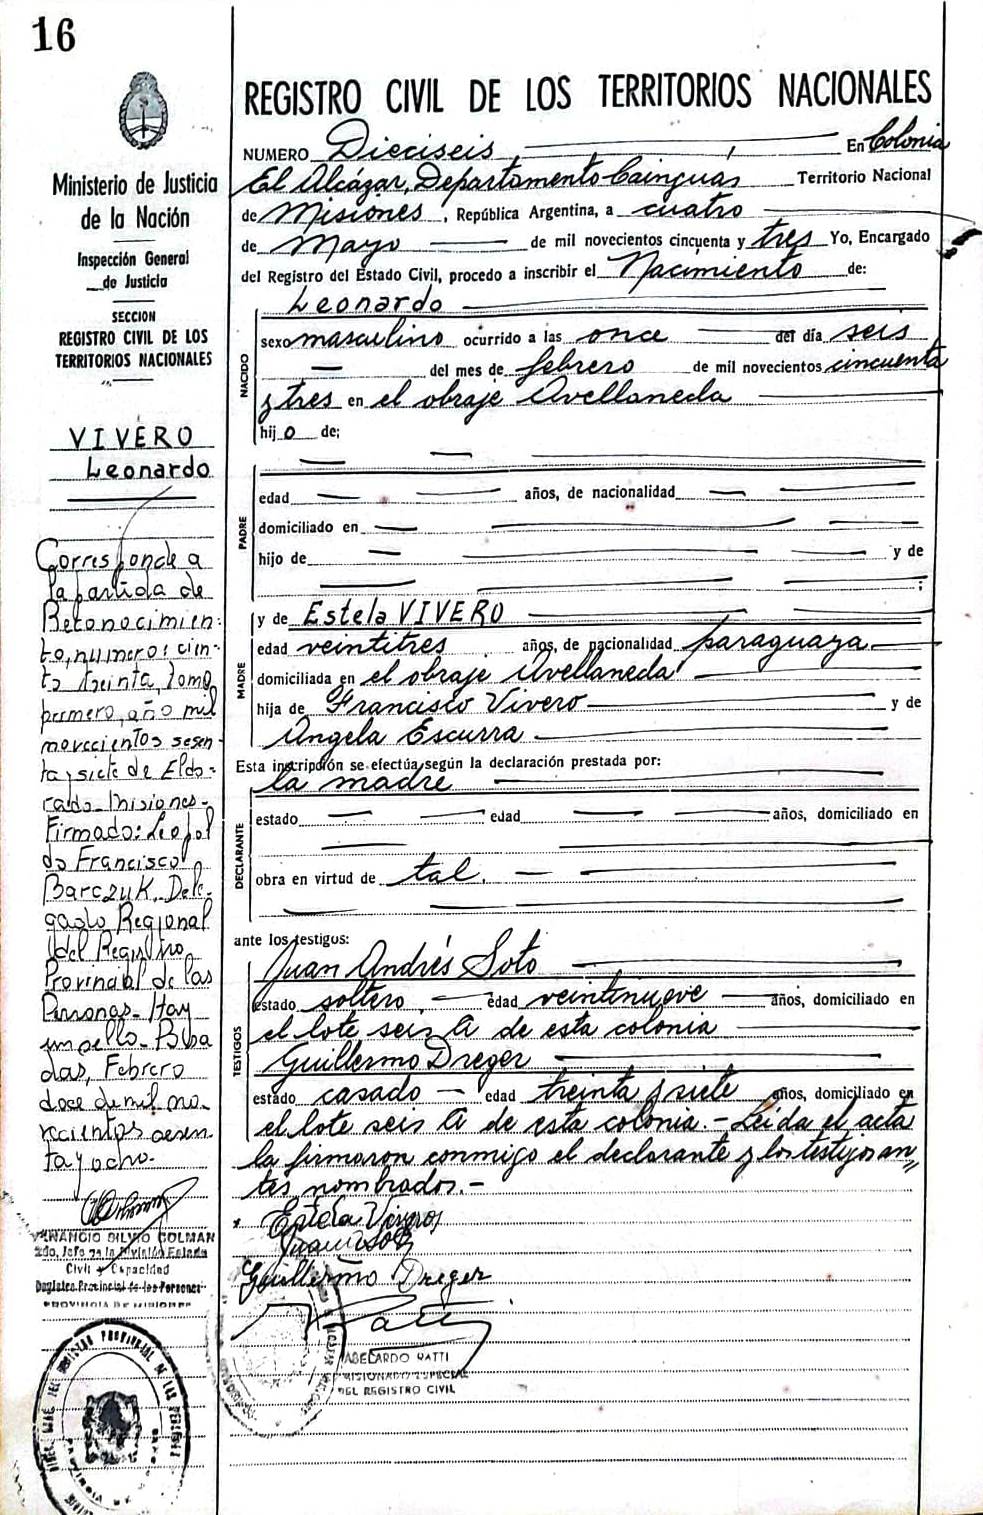 16
Ministerio de Justicia
de la Nación
Inspección General
de Justicia
SECCION
REGISTRO CIVIL DE LOS
TERRITORIOS NACIONALES
VIVERO
Leonardo
Corresponde a
la partida de
Reconocimien-
to, numero: cien-
to treinta, tomo
primero, año mil
novecientos sesen-
ta y siete de Eldo-
rado - Misiones -
Firmado: Leopol
do Francisco
Barczuk. Dele-
gado Regional
del Registro
Provincial de las
Personas - Hay
un sello - Posa
das, Febrero
doce de mil no-
vecientos sesen-
ta y ocho.
VENANCIO SILVIO COLMAN
2do. Jefe de la División Estado
Civil y Capacidad
Registro Provincial de las Personas
PROVINCIA DE MISIONES
REGISTRO CIVIL DE LOS TERRITORIOS NACIONALES
NUMERO Dieciseis En Colonia
El Alcázar, Departamento Cainguás Territorio Nacional
de Misiones, República Argentina, a cuatro
de Mayo de mil novecientos cincuenta y tres Yo, Encargado
del Registro del Estado Civil, procedo a inscribir el Nacimiento de:
NACIDO
Leonardo
sexo masculino ocurrido a las once del día seis
del mes de febrero de mil novecientos cincuenta
y tres en el obraje Avellaneda
hijo de;
PADRE
edad años, de nacionalidad
domiciliado en
hijo de y de
;
MADRE
y de Estela VIVERO
edad veintitres años, de nacionalidad paraguaya
domiciliada en el obraje Avellaneda
hija de Francisco Vivero y de
Angela Escurra
Esta inscripción se efectúa según la declaración prestada por:
la madre
DECLARANTE
estado edad años, domiciliado en
obra en virtud de tal.
ante los testigos:
TESTIGOS
Juan Andrés Soto
estado soltero edad veintinueve años, domiciliado en
el lote seis A de esta colonia
Guillermo Dreger
estado casado edad treinta y siete años, domiciliado en
el lote seis A de esta colonia. - Leida el acta
la firmaron conmigo el declarante y los testigos an„
tes nombrados. -
Estela Vivero
Juan A Soto
Guillermo Dreger
ABELARDO RATTI
MISIONADO ESPECIAL
DEL REGISTRO CIVIL